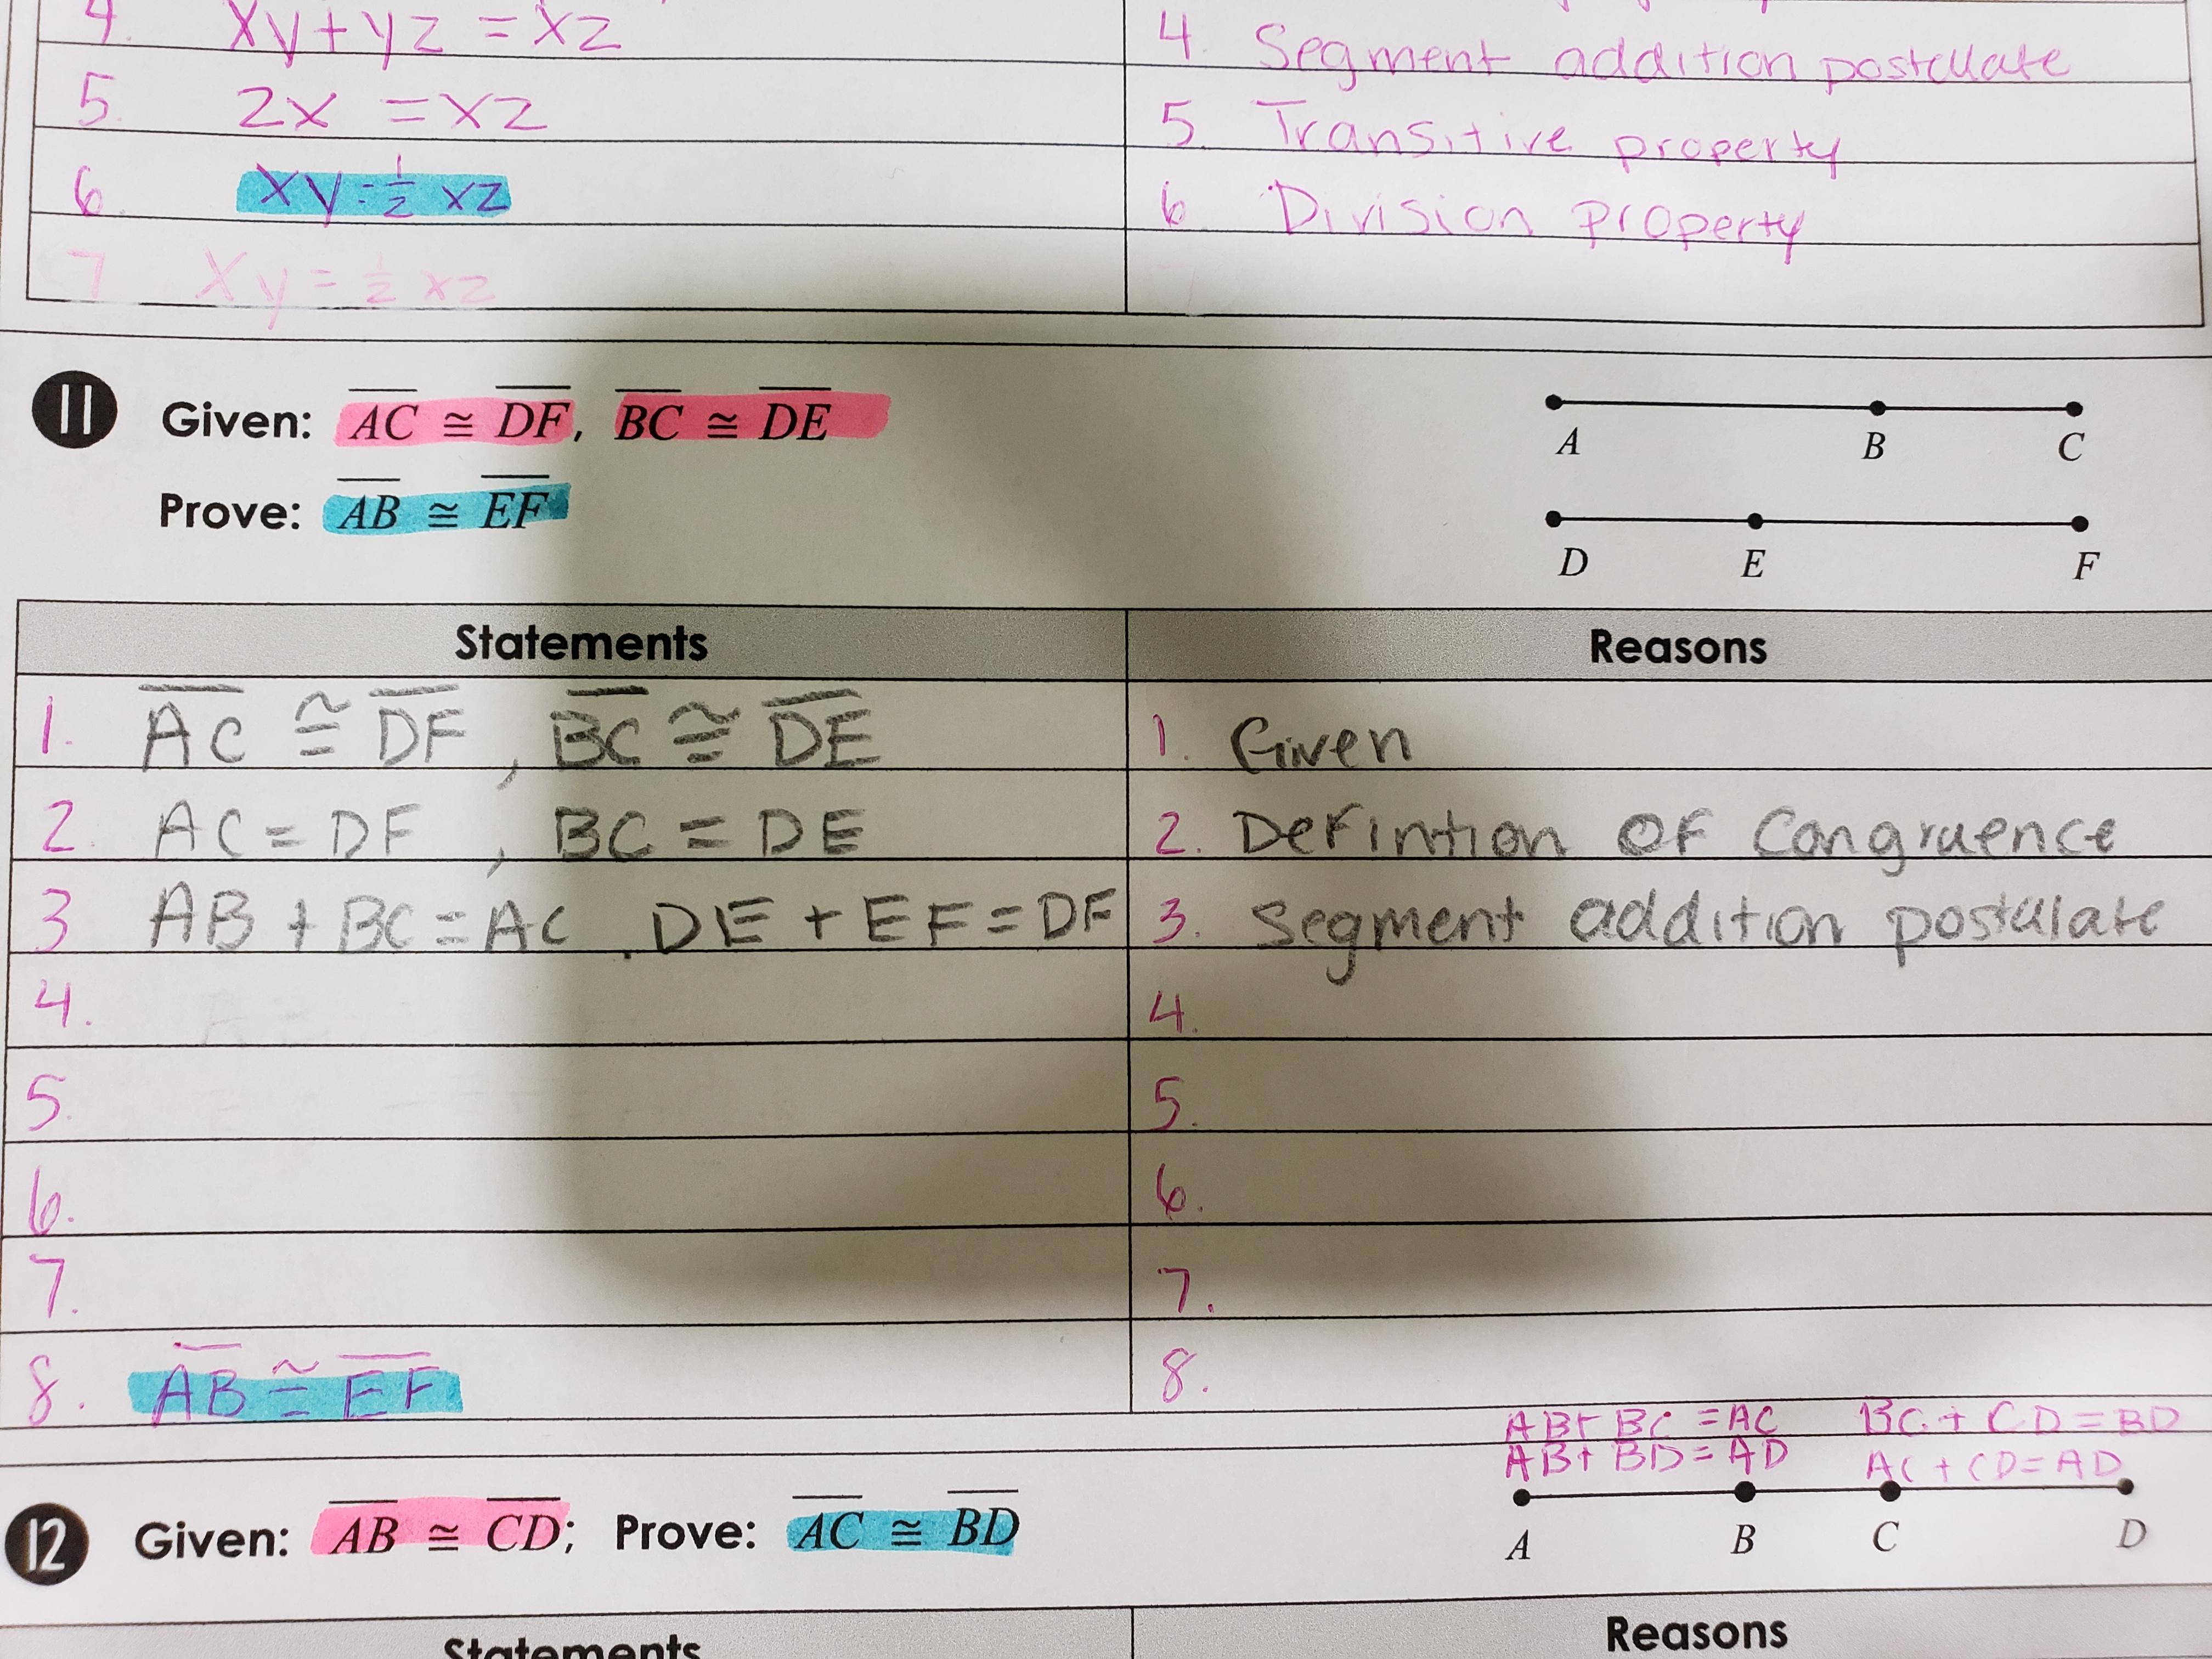 4. Xy+yz = xz
4. Segment addition postulate
5. 2x = xz
5. Transitive property
6. Xy = 1/2 xz
6 Division property
7 Xy = 1/2 xz
11 Given: AC ≅ DF, BC ≅ DE
A B C
Prove: AB ≅ EF
D E F
Statements
Reasons
1. AC ≅ DF, BC ≅ DE
1. Given
2. AC = DF, BC = DE
2. Defintion of Congruence
3 AB + BC = AC, DE + EF = DF
3. Segment addition postulate
4.
4.
5.
5.
6.
6.
7.
7.
8. AB ≅ EF
8.
AB+ BC = AC BC + CD = BD
AB+ BD = AD AC + CD = AD
12 Given: AB ≅ CD; Prove: AC ≅ BD
A B C D
Statements
Reasons